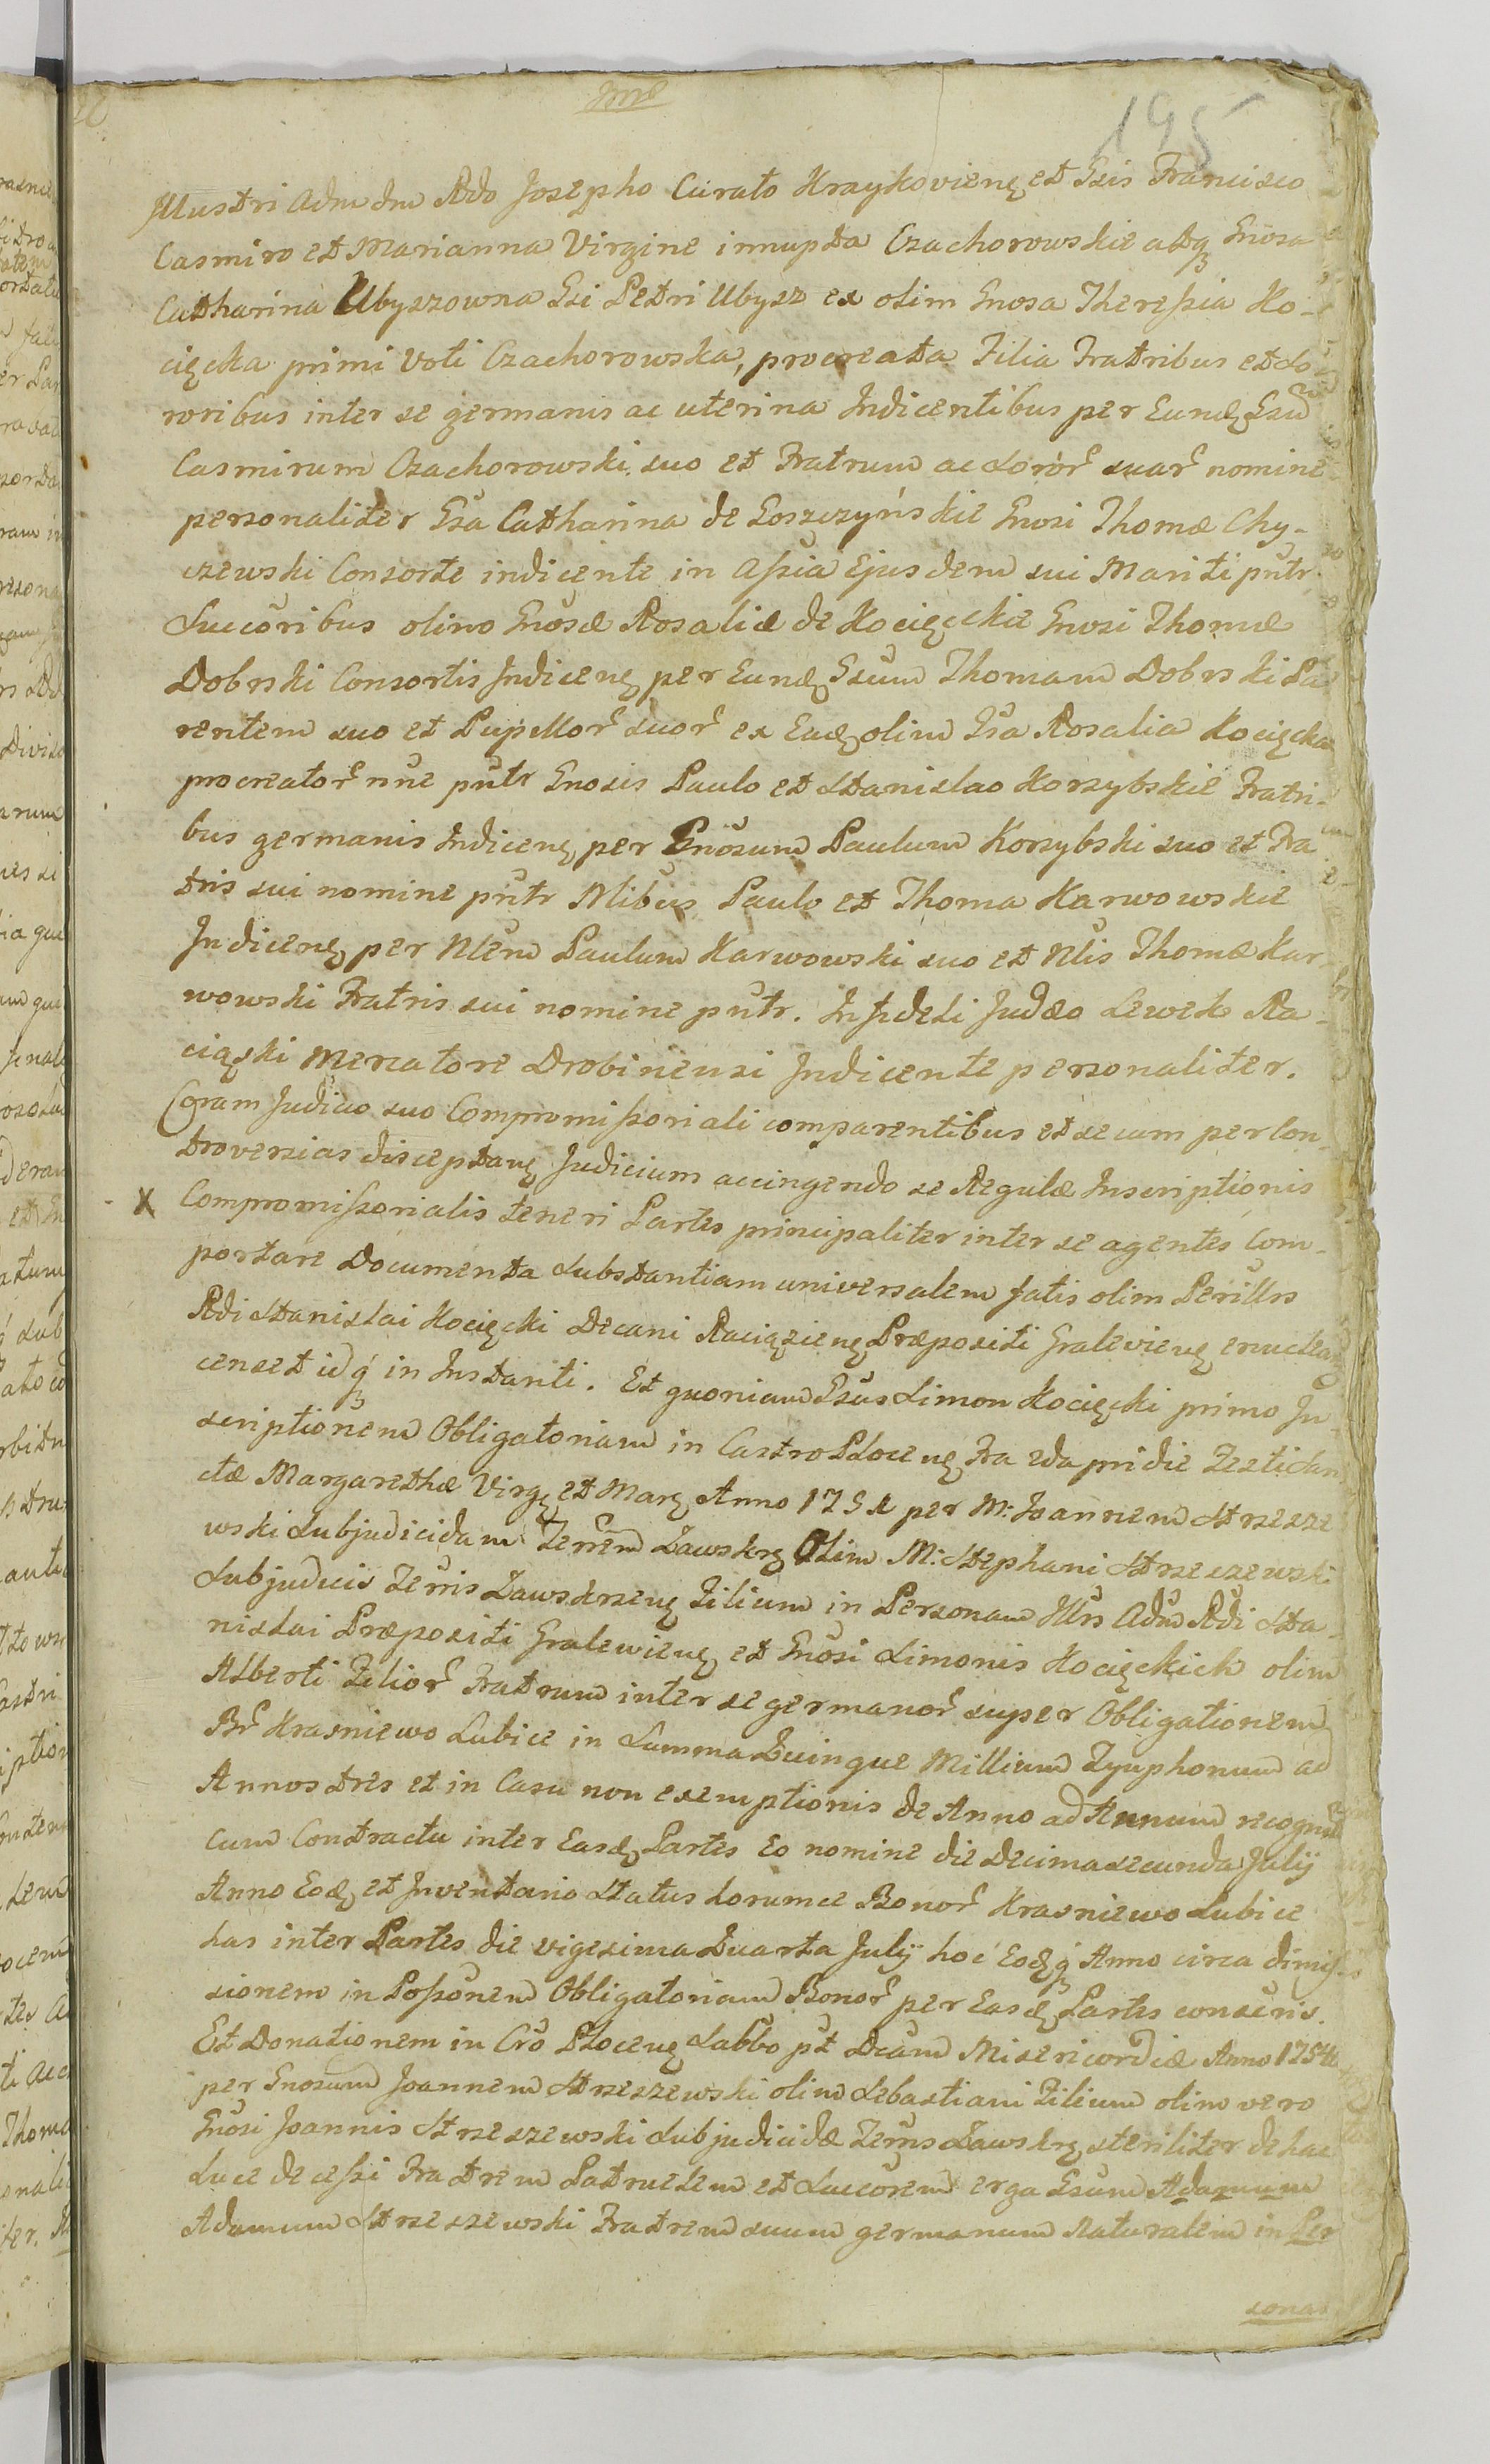 195
Illustri Adm dm Rdo Josepho Curato Kraykovienę et Gsis Francisco
Casmiro et Marianna Virgine innupta Czachorowskie atqꝫ Gnosa
Catharina Ubyszowna Gsi Petri Ubysz ex olim Gnosa Theressia Ko-
cięcka primi Voti Czachorowska, procreata Filia Fratribus et So-
roribus inter se germanis ac uterina Indicentibus per Eundę Gsũ
Casmirum Czachorowski suo et Fratrum ac Soror̃ suar̃ nomine
personaliter Gsa Catharina de Goszczyńskie Gnosi Thomæ Chy-
czewski Consorte indicente in Assia Ejusdem sui Mariti pntr.
Succoribus olim Gnosæ Rosaliæ de Kocięckie Gnosi Thomæ
Dobrski Consortis Indicenę per Eundę Gsum Thomam Dobrski Pa
rentem suo et Pupillor̃ suor̃ ex Eadę olim Gsa Rosalia Kocięcka
procreator̃ nũc pntr Gnosis Paulo et Stanislao Korzybskie Fratri-
bus germanis Indicenę per Gnosum Paulum Korzybski suo et Fra
tris sui nomine pntr Nlibus Paulo et Thoma Karwowskie
Indicenę per Nlem Paulum Karwowski suo et Nlis Thomæ Kar-
wowski Fratris sui nomine pntr. Infideli Judæo Lewek Ra-
ciąski Mercatore Drobinensi Indicente personaliter.
Coram Judicio suo Compromissoriali comparentibus et secum per Con-
troversias disceptanę Judicium accingendo se Regulæ Inscriptionis
X Compromissorialis teneri Partes principaliter inter se agentes Com-
portare Documenta Substantiam universalem fatis olim Perillrs
Rdi Stanislai Kocięcki Decani Raciązienę Præpositi Gralevienę eructeanę
censet idq́ in Instanti. Et quoniam Gsus Simon Kocięcki primo In-
scriptionem Obligatoriam in Castro Plocenę Fra 2da pridie Festi San
ctæ Margarethæ Virgę et Marę Anno 1751 per M: Joannem Strzesze
wski Subjudicidam Terrem Zawskrę Olim M: Stephani Strzeszewski
Subjudicis Terris Zawskrzenę Filium in Personam Illrs Adm Rdi Sta-
nislai Præpositi Gralewienę et Gnosi Simonis Kocięckich olim
Alberti Filior̃ Fratrum inter se germanor̃ super Obligationem
Br̃ Krasniewo Lubice in Summa Quinque Millium Tynphonum ad
Annos tres et in Casu non exemptionis de Anno ad Annum recognit
cum Contractu inter Easdę Partes Eo nomine die Decima secunda Julij
Anno Eodę et Inventario Status horumce Bonor̃ Krasniewo Lubice
has inter Partes die vigesima Quarta Julij hoc Eodęq́ Anno circa dimis-
sionem in Possonem Obligatoriam Bonor̃ per Easdę Partes conscris.
Et Donationem in Cro Plocenę Sabbo pt Dcam Misericordiæ Anno 1754
per Gnosum Joannem Strzeszewski olim Sebastiani Filium olim vero
Gnosi Joannis Strzeszewski Subjudicidæ Terris Zawskrę steriliter de hac
Luce decessi Fratrem Patruelem et Succorem erga Gsum Adamum
Adamum Strzeszewski Fratrem suum germanum Naturalem in Per
sonam